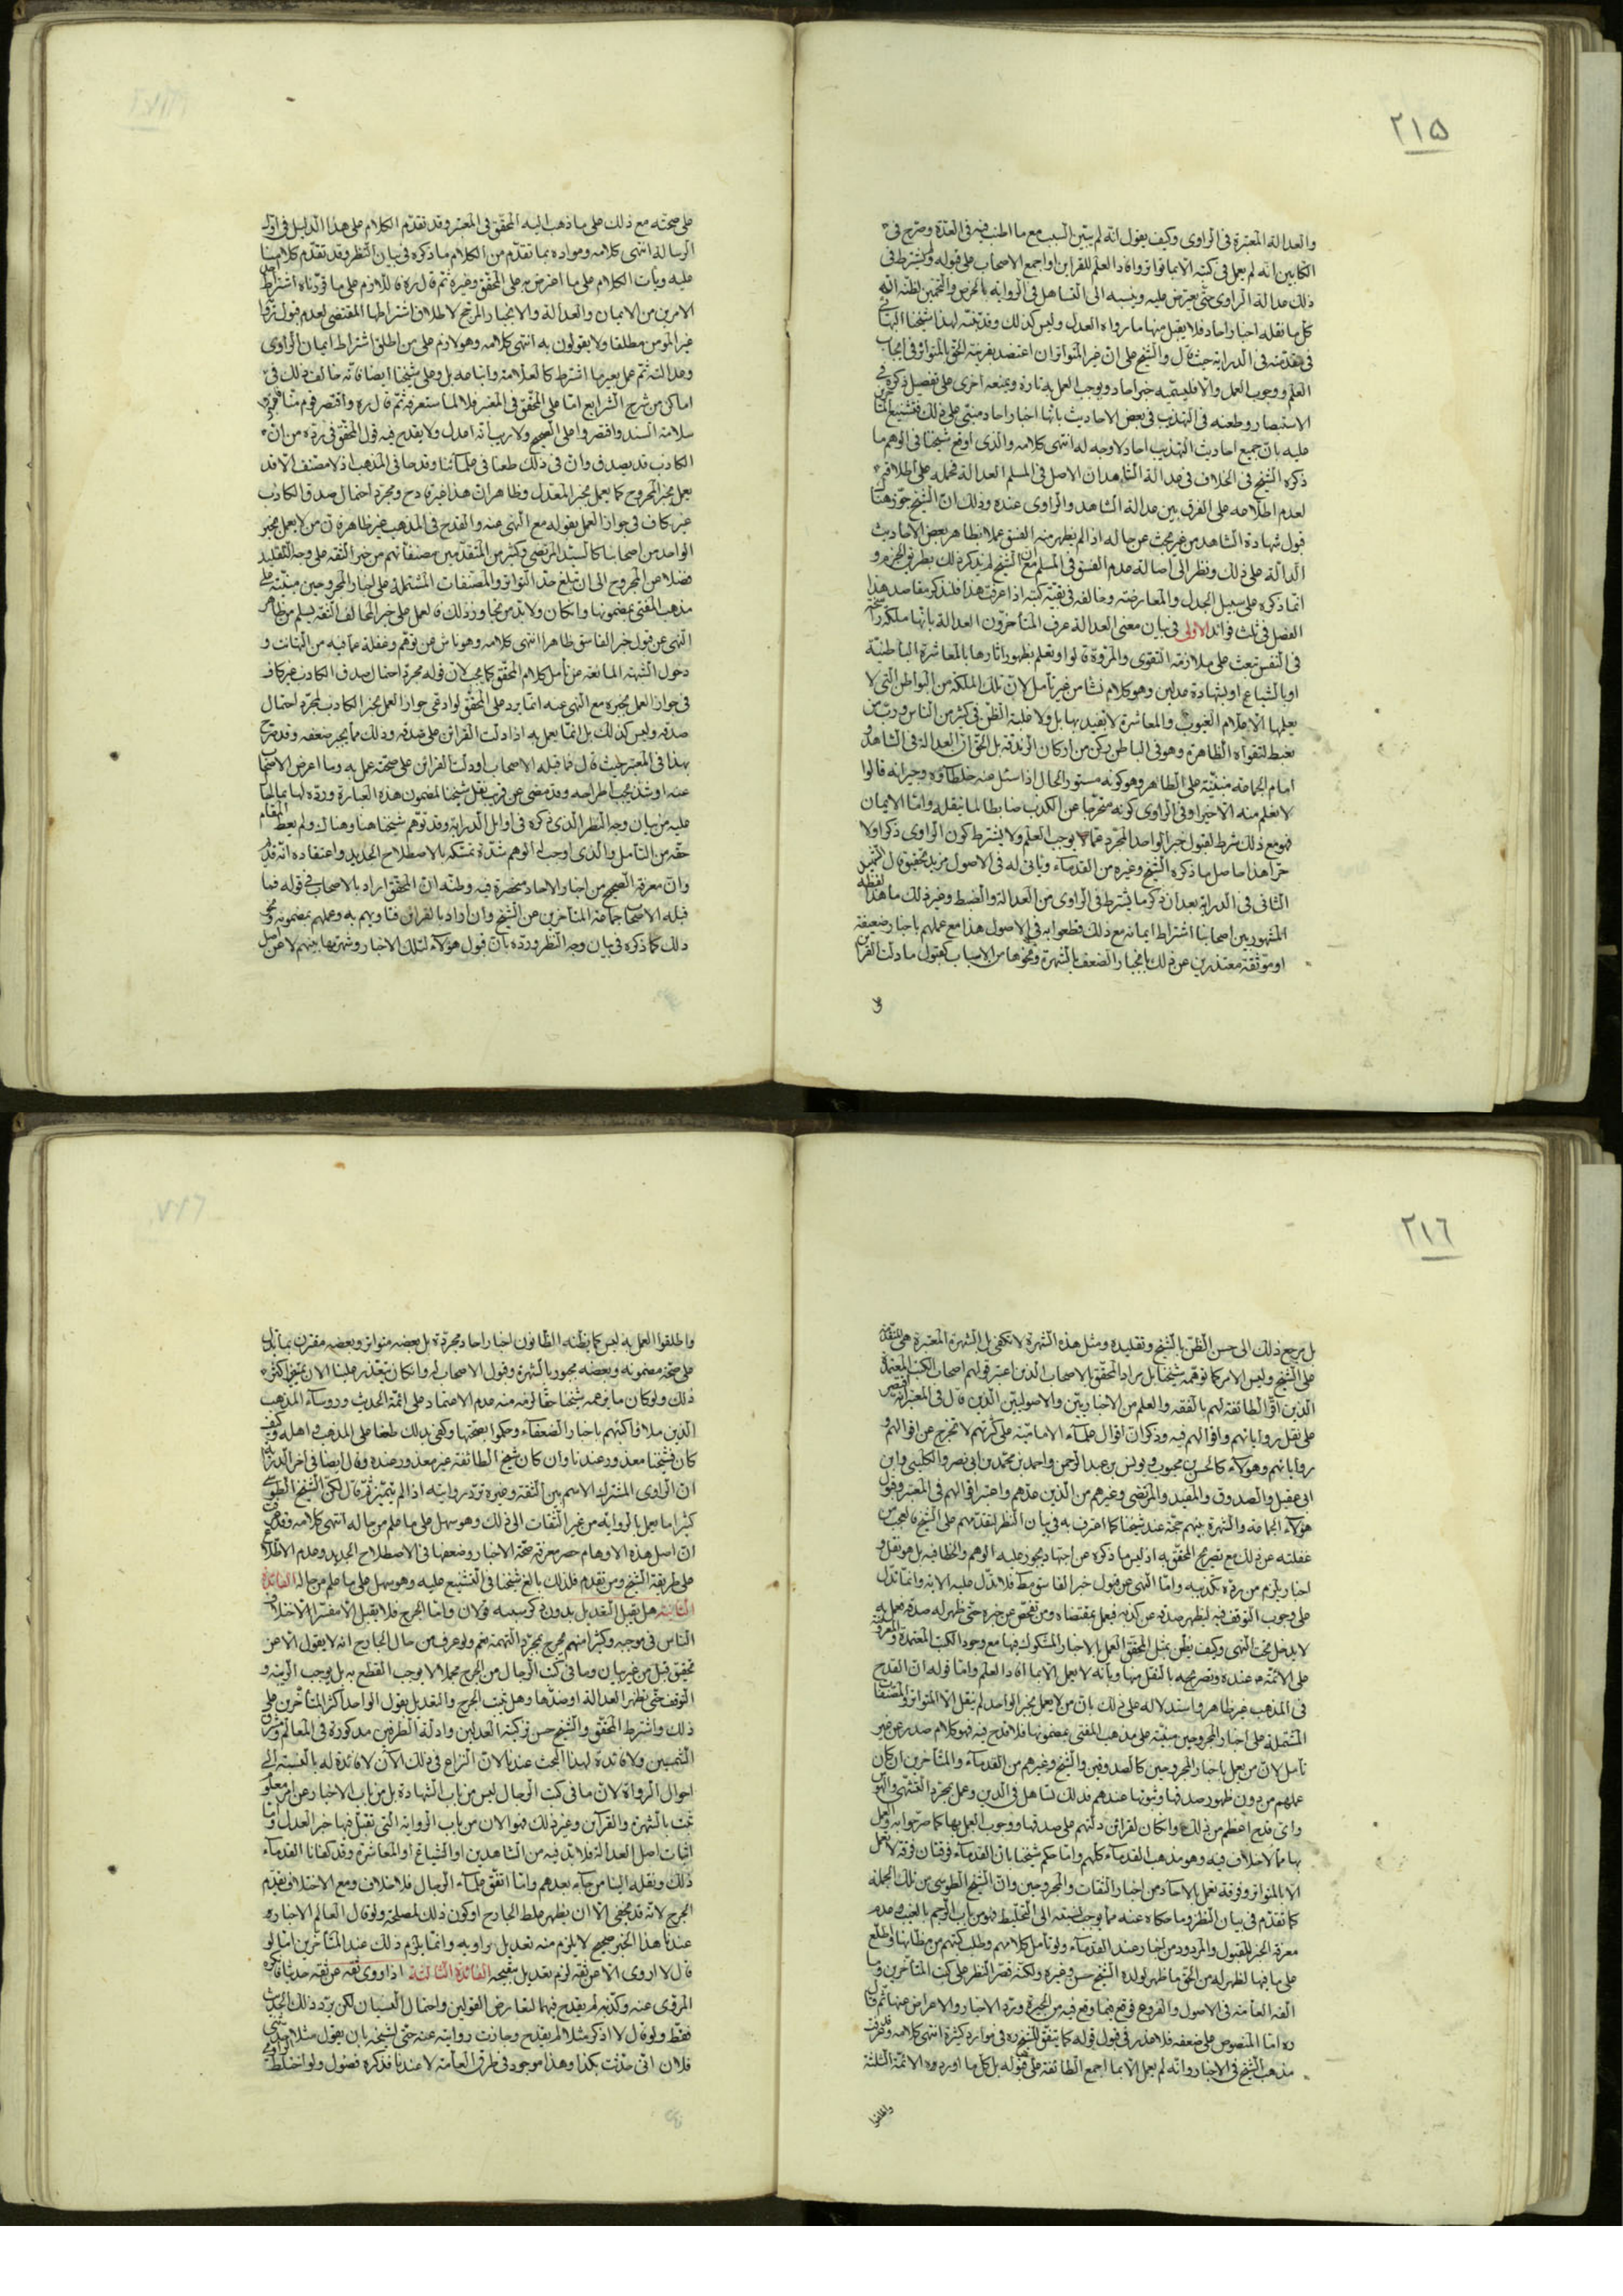 ٢١٥
والعدالة المعتبرة فى الراوى وكيف يقول انه لم يبين السبب مع ما اطنب فيه فى العدة وصرح فى
الكتابين انه لم يعمل فى كتبه الا بما تواتر وافاد العلم للقراين او اجمع الاصحاب على قبوله ولم يشترط فى
ذلك عدالة الراوى حتى يعترض عليه وينسبه الى التساهل فى الرواية بالخرص والتخمين لظنه انه
كل ما نقله اخبار احاد فلا يقبل منها ما رواه العدل وليس كذلك وقد تنبه لهذا شيخنا البهائى
فى مقدمته فى الدراية حيث قال والشيخ على ان غير المتواتر ان اعتضد بقرينة الحق بالمتواتر فى ايجاب
العلم ووجوب العمل والا فليسميه خبر احاد ويوجب العمل به تارة ويمنعه اخرى على تفصيل ذكره فى
الاستبصار وطعنه فى التهذيب فى بعض الاحاديث بانها اخبار احاد مبنى على ذلك فتشنيع
عليه بان جميع احاديث التهذيب احاد لا وجه له انتهى كلامه والذى اوقع شيخنا فى الوهم ما
ذكره الشيخ فى الخلاف فى عدالة الشاهد ان الاصل فى المسلم العدالة فحمله على اطلاقه
لعدم اطلاعه على الفرق بين عدالة الشاهد والراوى عنده وذلك ان الشيخ جوز هنا
قبول شهادة الشاهد من غير بحث عن حاله اذا لم يظهر منه الفسق عملا بظاهر بعض الاحاديث
الدالة على ذلك ونظرا الى اصالة عدم الفسق فى المسلم مع ان الشيخ لم يذكر ذلك بطريق الجزم و
انما ذكره على سبيل الجدل والمعارضة وخالفه فى بقية كتبه اذا عرفت هذا فلنذكر مقاصد هذا
الفصل فى ثلث فوائد الاولى فى بيان معنى العدالة عرف المتاخرون العدالة بانها ملكة راسخة
فى النفس تبعث على ملازمة التقوى والمروة قالوا وتعلم بظهور اثارها بالمعاشرة الباطنية
او بالشياع او بشهادة عدلين وهو كلام نشا من غير تامل لان تلك الملكة من البواطن التى لا
يعلمها الا علام الغيوب والمعاشرة لا تفيد بها بل ولا غلبة الظن فى كثير من الناس ورب من
تغبط لتقواه الظاهرة وهو فى الباطن ركن من اركان الزندقة بل الحق ان العدالة فى الشاهد و
امام الجماعة مبنية على الظاهر وهو كونه مستور الحال اذا سئل عنه خلطاؤه وجيرانه قالوا
لا نعلم منه الا خيرا وفى الراوى كونه متحرزا عن الكذب ضابطا لما ينقله واما الايمان
فهو مع ذلك شرط لقبول خبر الواحد المجرد عما لا يوجب العلم ولا يشترط كون الراوى ذكرا ولا
حرا هذا حاصل ما ذكره الشيخ وغيره من القدماء وياتى له فى الاصول مزيد تحقيق قال الشهيد
الثانى فى الدراية بعد ان ذكر ما يشترط فى الراوى من العدالة والضبط وغير ذلك ما هذا لفظه
المشهور بين اصحابنا اشتراط ايمانه مع ذلك قطعوا به فى الاصول هذا مع عملهم باخبار ضعيفة
او موثقة معتذرين عن ذلك بانجبار الضعف بالشهرة ونحوها من الاسباب كقبول ما دلت القراين
على صحته مع ذلك على ما ذهب اليه المحقق فى المعتبر وقد تقدم الكلام على هذا الدليل فى اول
الرسالة انتهى كلامه ومراده بما تقدم من الكلام ما ذكره فى بيان النظر وقد تقدم كلامنا
عليه وياتى الكلام على ما اعترض به على المحقق وغيره ثم قال ره فاللازم على ما قررناه اشتراط احد
الامرين من الايمان والعدالة والانجبار المرجح لا اطلاق اشتراطهما المقتضى لعدم قبول
غير المومن مطلقا ولا يقولون به انتهى كلامه وهو لازم على من اطلق اشتراط ايمان الراوى
وعدالته ثم عمل بغير ما اشترط كالعلامة واتباعه بل وعلى شيخنا ايضا فانه خالف ذلك فى
اماكن من شرح الشرايع اما على المحقق فى المعتبر فلا لما ستعرفه ثم قال ره واقتصر قوم منا
سلامة السند واقتصروا على الصحيح ولا ريب انه اعدل ولا يقدح فيه قول المحقق فى رده من ان
الكاذب قد يصدق وان فى ذلك طعنا فى علمائنا وقدحا فى المذهب اذ لا مصنف الا وقد
يعمل بخبر المجروح كما يعمل بخبر المعدل وظاهر ان هذا غير قادح ومجرد احتمال صدق الكاذب
غير كاف فى جواز العمل بقوله مع النهى عنه والقدح فى المذهب غير ظاهر فان من لا يعمل بخبر
الواحد من اصحابنا كالسيد المرتضى وكثير من المتقدمين مصنفاتهم من خبر الثقة على وجه التقليد
فضلا عن المجروح الى ان تبلغ حد التواتر والمصنفات المشتملة على اخبار المجروحين مبنية على
مذهب المفتى بمضمونها وان كان ولا بد من تجاوز ذلك فالعمل على خبر المخالف الثقة يسلم من ظاهر
النهى عن قبول خبر الفاسق ظاهرا انتهى كلامه وهو ناش عن توهم وغفلة عما فيه من الهنات و
دخول الشبهة المانعة عن تامل كلام المحقق كما يجب لان قوله مجرد احتمال صدق الكاذب غير كاف
فى جواز العمل بخبره مع النهى عنه انما يرد على المحقق لو ادعى جواز العمل بخبر الكاذب لمجرد احتمال
صدقه وليس كذلك بل انما يعمل به اذا دلت القراين على صدقه وذلك مما يجبر ضعفه وقد صرح
بهذا فى المعتبر حيث قال فما قبله الاصحاب او دلت القراين على صحته عمل به وما اعرض الاصحاب
عنه او شذ يجب اطراحه وقد مضى عن قريب نقل شيخنا لمضمون هذه العبارة ورده لها بما احال
عليه من بيان وجه النظر الذى ذكره فى اوايل الدراية وقد توهم شيخنا هنا وهناك ولم يعط المقام
حقه من التامل والذى اوجب له الوهم شدة تمسكه بالاصطلاح الجديد واعتقاده انه قديم
وان معرفة الصحيح من اخبار الاحاد منحصرة فيه وظنه ان المحقق اراد بالاصحاب فى قوله فما
قبله الاصحاب جماعة المتاخرين عن الشيخ وان اراد بالقراين فتاويهم به وعملهم بمضمونه ونحو
ذلك كما ذكره فى بيان وجه النظر ورده بان قبول هؤلاء لتلك الاخبار وشهرتها بينهم لا عن اصل
٢١٦
بل مرجع ذلك الى حسن الظن بالشيخ وتقليده ومثل هذه الشهرة لا تكفى بل الشهرة المعتبرة هى المتقدمة
على الشيخ وليس الامر كما توهمه شيخنا بل مراد المحقق بالاصحاب الذين اعتبر قولهم اصحاب الكتب المعتمدة
الذين اقر الطائفة لهم بالفقه والعلم من الاخباريين والاصوليين الذين قال فى المعتبر انه اقتصر
على نقل رواياتهم واقوالهم فيه وذكر ان اقوال علماء الامامية على كثرتهم لا تخرج عن اقوالهم و
رواياتهم وهؤلاء كالحسن بن محبوب ويونس بن عبد الرحمن واحمد بن محمد بن ابى نصر والكلينى وابن
ابى عقيل والصدوق والمفيد والمرتضى وغيرهم من الذين عدهم واعتبر اقوالهم فى المعتبر وقول
هؤلاء الجماعة والشهرة بينهم حجة عند شيخنا كما اعترف به فى بيان النظر لتقدمهم على الشيخ فالعجب من
غفلته عن ذلك مع تصريح المحقق به اذ ليس ما ذكره عن اجتهاد يجوز عليه الوهم والخطا فيه بل هو نقل و
اخبار يلزم من رده تكذيبه واما النهى عن قبول خبر الفاسق مط فلا تدل عليه الاية وانما تدل
على وجوب التوقف فيه ليظهر صدقه من كذبه فيعمل بمقتضاه ومن تفحص عن خبره حتى ظهر له صدقه فعمل به
لا يدخل تحت النهى وكيف يظن بمثل المحقق العمل بالاخبار المشكوك فيها مع وجود الكتب المعتمدة والمعروضة
على الائمة ع عنده وتصريحه بالنقل منها وبانه لا يعمل الا بما افاد العلم واما قوله ان القدح
فى المذهب غير ظاهر واستدلاله على ذلك بان من لا يعمل بخبر الواحد لم ينقل الا المتواتر والمصنفات
المشتملة على اخبار المجروحين مبنية على مذهب المفتى بمضمونها فلا قدح فيه فهو كلام صدر عن غير
تامل لان من يعمل باخبار المجروحين كالصدوقين والشيخ وغيرهم من القدماء والمتاخرين ان كان
عملهم من دون ظهور صدقها وثبوتها عندهم فذلك تساهل فى الدين وعمل بمجرد التشهى والهوى
واى قدح اعظم من ذلك وان كان لقراين دلتهم على صدقها ووجوب العمل بها كما صرحوا به والعمل
بها مما لا خلاف فيه وهو مذهب القدماء كلهم واما حكم شيخنا بان القدماء فرقتان فرقة لا تعمل
الا بالمتواتر وفرقة تعمل بالاحاد من اخبار الثقات والمجروحين وان الشيخ الطوسى من تلك الجملة
كما تقدم فى بيان النظر وما حكاه عنه مما يوجب نسبته الى التخليط فهو من باب الرجم بالغيب وعدم
معرفة الخبر المقبول والمردود من اخبار عند القدماء ولو تامل كلامهم وطلب كتبهم من مظانها واطلع
على ما فيها لظهر له من الحق ما ظهر لولده الشيخ حسن وغيره ولكنه قصر النظر على كتب المتاخرين وما
الفه العامة فى الاصول والفروع فوقع فيما وقع فيه من الحيرة ورد الاخبار والاعراض عنها ثم قال
ره اما المنصوص على ضعفه فلا عذر فى قبول قوله كما يتفق للشيخ ره فى موارد كثيرة انتهى كلامه وقد عرفت
مذهب الشيخ فى الاخبار وانه لم يعمل الا بما اجمع الطائفة على قبوله بل كل ما اورده الائمة الثلثة
واطلقوا
واطلقوا العمل به ليس كما يظنه الظانون اخبار احاد مجردة بل بعضه متواتر وبعضه مقترن بما يدل
على صحة مضمونه وبعضه مجبور بالشهرة وقبول الاصحاب له وان كان يتعذر علينا الان تمييز اكثر
ذلك ولو كان ما توهمه شيخنا حقا لزمه منه عدم الاعتماد على ائمة الحديث وروساء المذهب
الذين ملاوا كتبهم باخبار الضعفاء وحكموا بصحتها وكفى بذلك طعنا على المذهب واهله وكيف
كان فشيخنا معذور عندنا وان كان شيخ الطائفة غير معذور عنده وقال ايضا فى اخر الدراية
ان الراوى المشترك الاسم بين الثقة وغيره ترد روايته اذا لم يتميز ثم قال لكن الشيخ الطوسى
كثيرا ما يعمل بالرواية من غير الثقات الى ذلك وهو سهل على ما علم من حاله انتهى كلامه وقد عرفت
ان اصل هذه الاوهام حصر معرفة صحة الاخبار وضعفها فى الاصطلاح الجديد وعدم الاطلاع
على طريقة الشيخ ومن تقدم فلذلك بالغ شيخنا فى التشنيع عليه وهو سهل على ما علم من حاله الفائدة
الثانية هل يقبل التعديل بدون ذكر سببه قولان واما الجرح فلا يقبل الا مفسرا لاختلاف
الناس فى موجبه وكثير منهم يجرح بمجرد التهمة نعم ولو عرف من حال الجارح انه لا يقول الا عن
تحقيق قبل من غير بيان وما فى كتب الرجال من الجرح مجملا لا يوجب القطع به بل يوجب الريبة و
التوقف حتى يظهر العدالة او ضدها وهل يثبت الجرح والتعديل بقول الواحد اكثر المتاخرين على
ذلك واشترط المحقق والشيخ حسن تزكية العدلين وادلة الطرفين مذكورة فى المعالم
ولا فائدة لهذا البحث عندنا لان النزاع فى ذلك الان لا فائدة له بالنسبة الى
احوال الرواة لان ما فى كتب الرجال ليس من باب الشهادة بل من باب الاخبار عن امر معلوم
ثبت بالشهرة والقراين وغير ذلك فهو الان من باب الرواية التى تقبل فيها خبر العدل واما
اثبات اصل العدالة فلا بد فيه من الشاهدين او الشياع او المعاشرة وقد كفانا القدماء
ذلك ونقله الينا من جاء بعدهم وما اتفق علماء الرجال فلا خلاف ومع الاختلاف يقدم
الجرح لانه قد يخفى الا ان يظهر غلط الجارح او كون ذلك لمصلحة ولو قال العالم الاخبارى
عندنا هذا الخبر صحيح لا يلزم منه تعديل راويه وانما يلزم ذلك عند المتاخرين اما لو
قال لا اروى الا عن ثقة لزم تعديل شيخه الفائدة الثالثة اذا روى ثقة عن ثقة حديثا فانكره
المروى عنه وكذبه لم يقدح فيهما لتعارض القولين واحتمال النسيان لكن يرد ذلك الحديث
فقط ولو قال لا اذكر مثلا لم يقدح وجازت روايته عنه حتى لشيخه بان يقول مثلا حدثنى
فلان انى حدثت بكذا وهذا موجود فى طرق العامة لا عندنا فذكره فضول ولو اختلطت